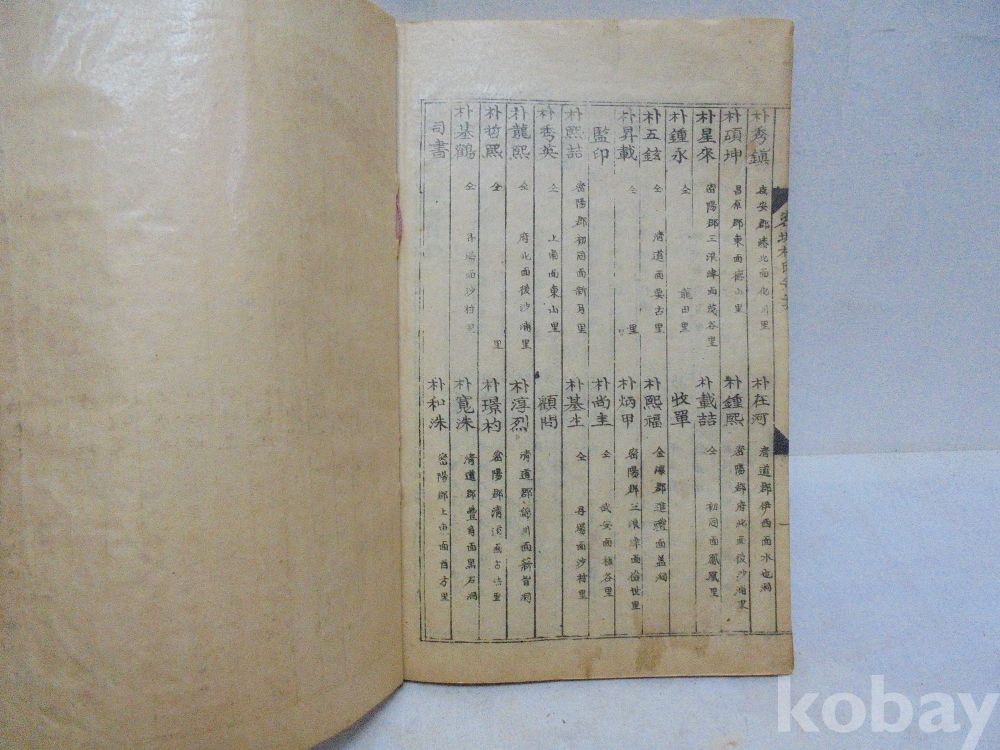 朴秀鎮 咸安郡漆北面化川里
朴在河 清道郡伊西面水也洞
朴碩坤 昌原郡東面德山里
朴鍾熙 密陽郡府北面後沙浦里
朴星來 密陽郡三浪津面茂谷里
朴載喆 仝 初同面鳳凰里
朴鍾永 仝 龍田里
收單
朴五鉉 仝 清道面雲古里
朴熙福 金海郡進禮面
朴昇載 仝 里
朴炳甲 密陽郡三浪津面儉世里
監印
朴尚圭 仝 武安面 谷里
朴熙喆 密陽郡初同面新月里
朴基生 仝 丹場面沙村里
朴秀英 仝 上南面東山里
顧問
朴龍熙 仝 府北面後沙浦里
朴淳烈 清道郡 川面 洞
朴哲熙 仝 里
朴璟杓 密陽郡清道面古 里
朴基鶴 仝 丹場面沙村里
朴寬洙 清道郡豊角面黑石洞
司書
朴和洙 密陽郡上東面 方里
kobay